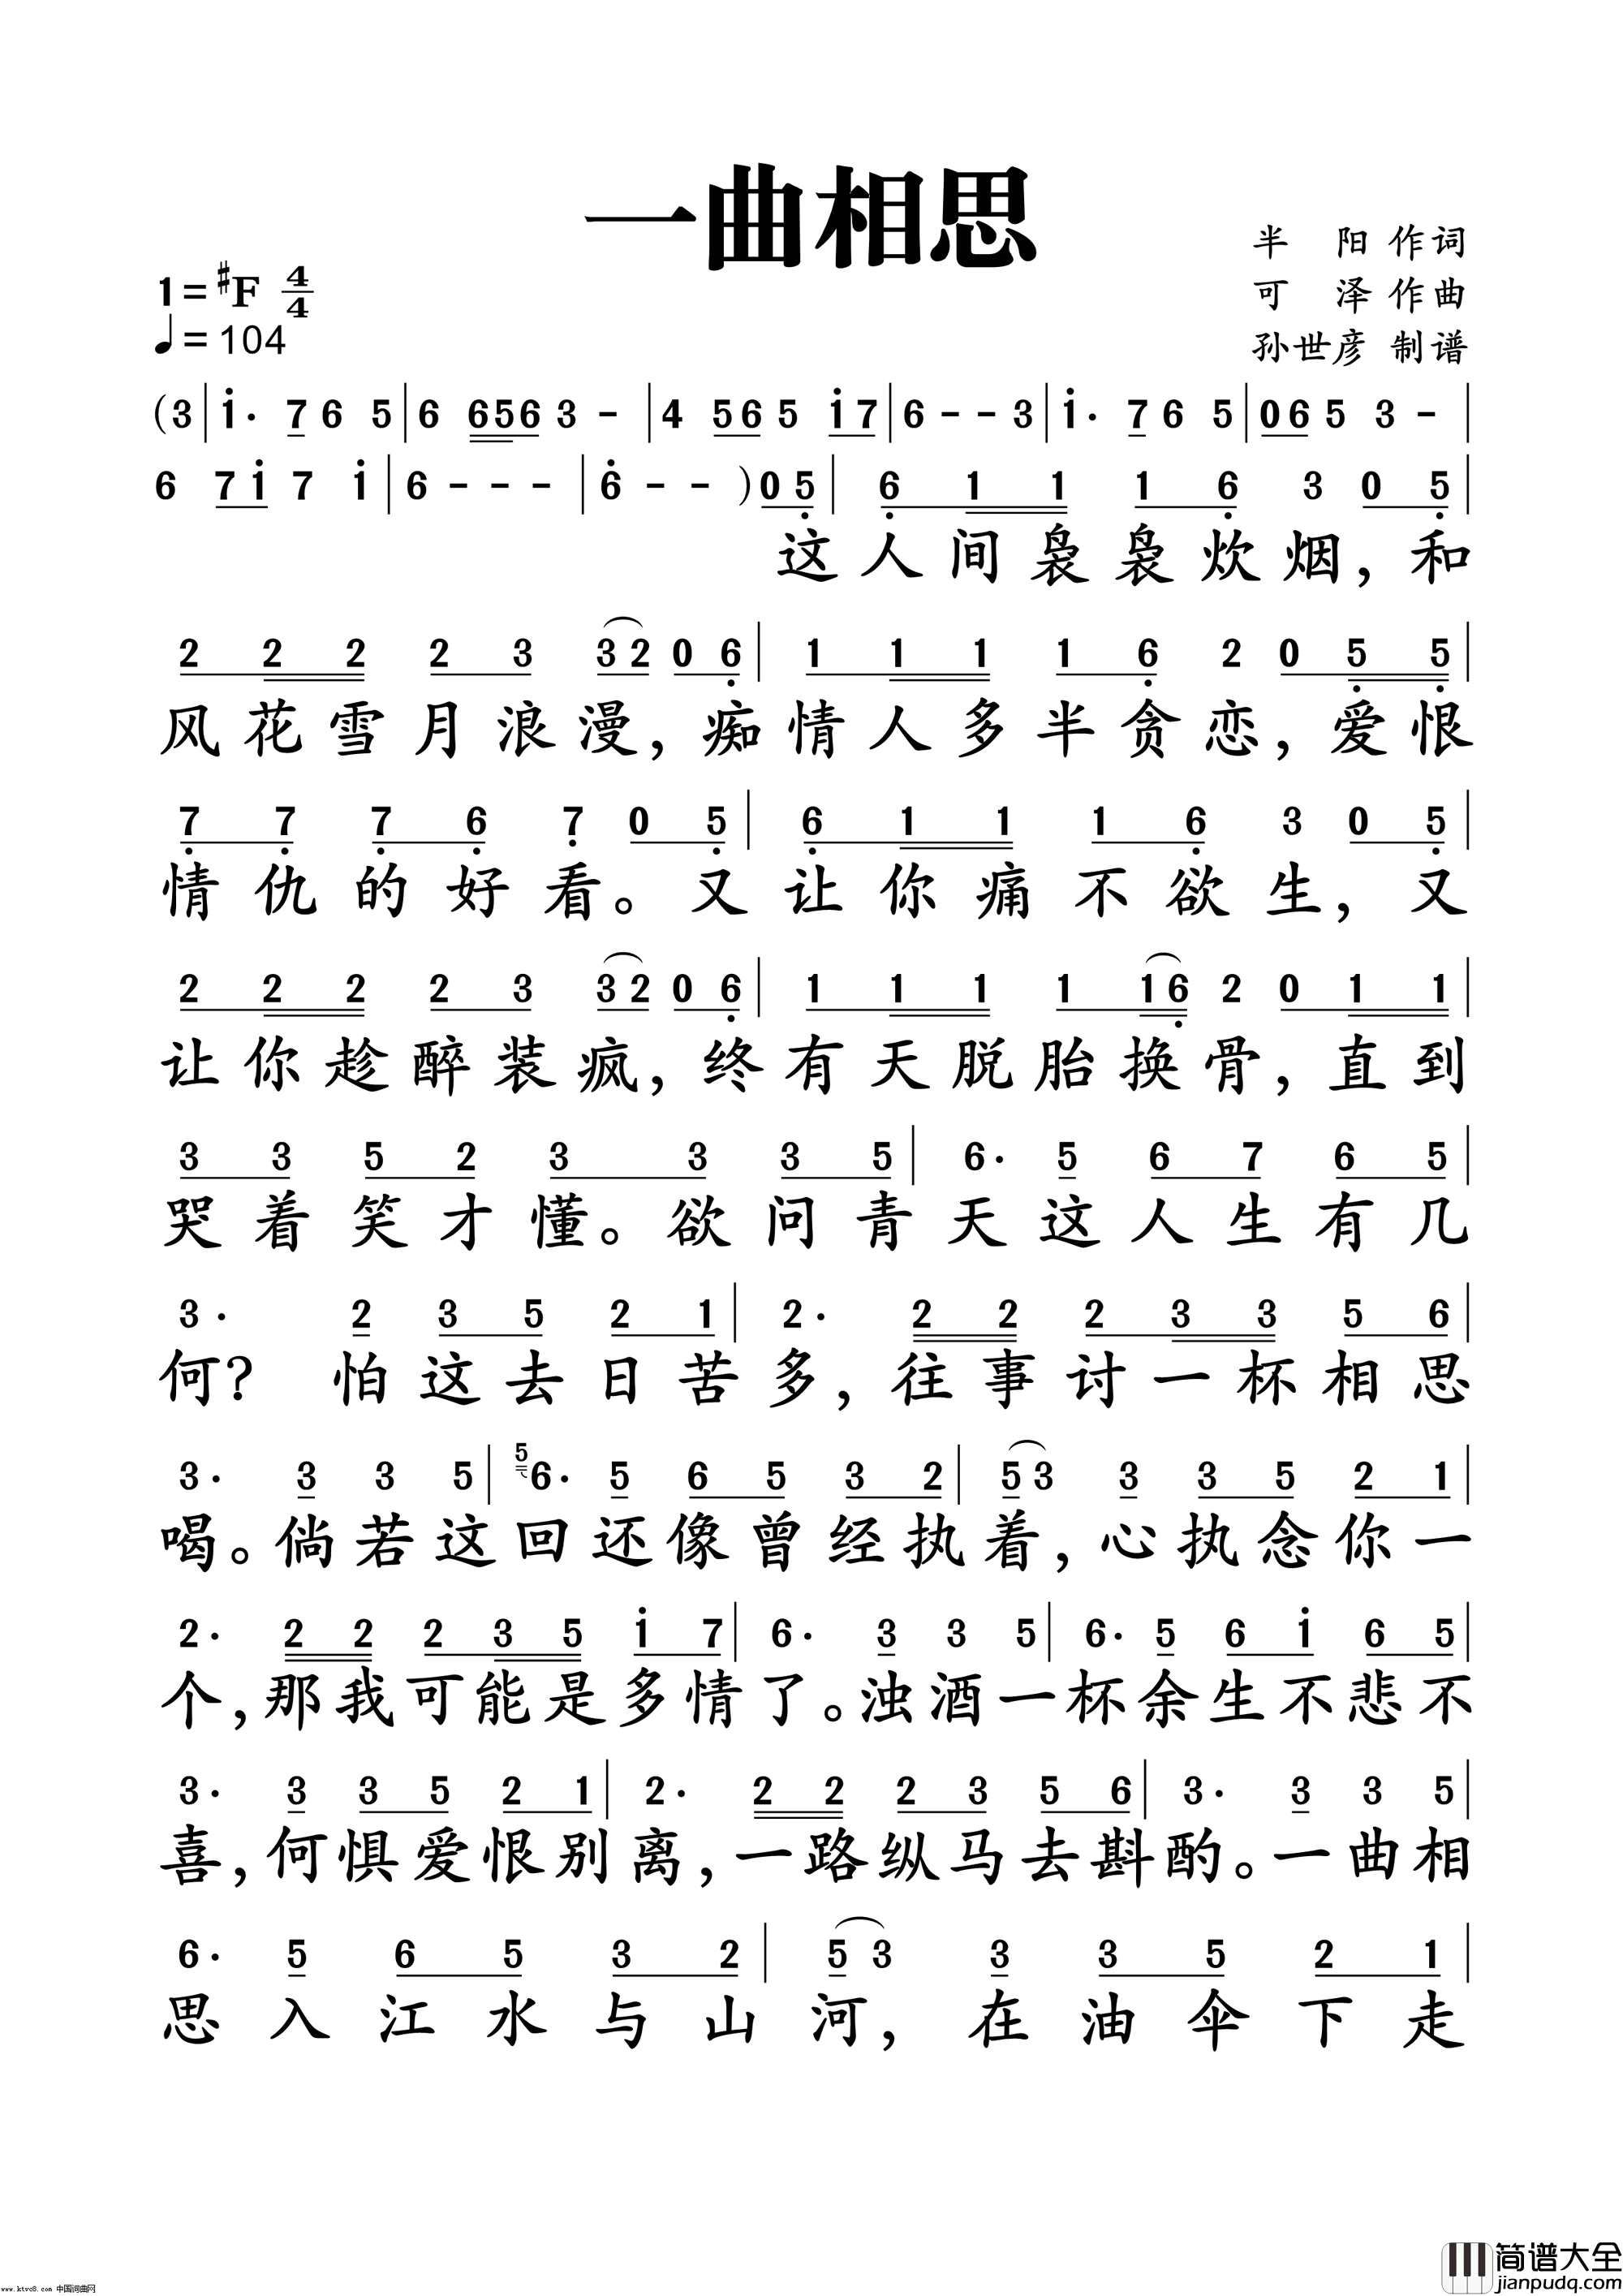 一曲相思
半 阳 作词
1=#F 4/4
可 泽 作曲
♩=104
孙世彦 制谱
(3|i· 7 6 5|6 656 3 -|4 56 5 i7|6 - - 3|i· 7 6 5|06 5 3 -|
6 7i 7 i|6 - - -|6 - - )0 5|6 1 1 1 6 3 0 5|
这人间袅袅炊烟,和
2 2 2 2 3 3 2 0 6|1 1 1 1 6 2 0 5 5|
风花雪月浪漫,痴情人多半贪恋,爱恨
7 7 7 6 7 0 5|6 1 1 1 6 3 0 5|
情仇的好看。又让你痛不欲生,又
2 2 2 2 3 3 2 0 6|1 1 1 1 1 6 2 0 1 1|
让你趁醉装疯,终有天脱胎换骨,直到
3 3 5 2 3 3 3 5|6· 5 6 7 6 5|
哭着笑才懂。欲问青天这人生有几
3· 2 3 5 2 1|2· 2 2 2 3 3 5 6|
何? 怕这去日苦多,往事讨一杯相思
3· 3 3 5|5 6· 5 6 5 3 2|5 3 3 3 5 2 1|
喝。倘若这回还像曾经执着,心执念你一
2· 2 2 2 3 5 i 7|6· 3 3 5|6· 5 6 i 6 5|
个,那我可能是多情了。浊酒一杯余生不悲不
3· 3 3 5 2 1|2· 2 2 2 3 5 6|3· 3 3 5|
喜,何惧爱恨别离,一路纵马去斟酌。一曲相
6· 5 6 5 3 2|5 3 3 3 5 2 1|
思入江水与山河,在油伞下走
www.ktvc8.com 中国词曲网
简谱大全
jianpudq.com